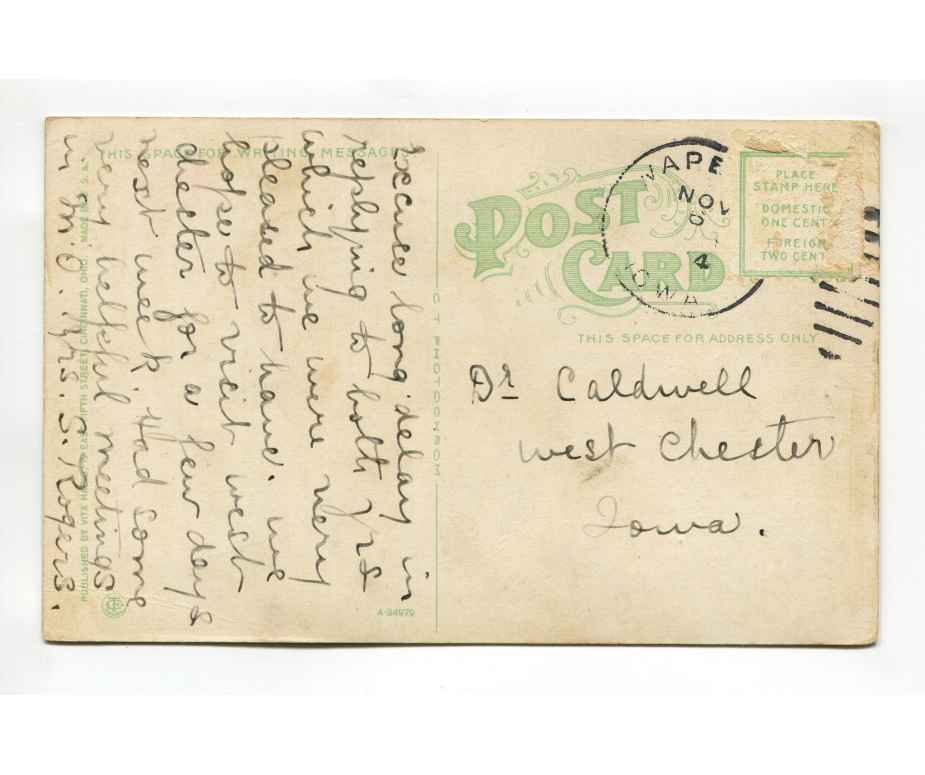 THIS SPACE FOR WRITING MESSAGES
Excuse long delay in
replying to both yrs
which we were very
pleased to have. we
hope to visit west
chester for a few days
next week Had some
very helpful meetings
in M.O. Mrs. S. Rogers.
PUBLISHED BY VITA
EAST FIFTH STREET, CINCINNATI, OHIO. MADE IN U.S.A.
A-34979
POST
CARD
WAPE
NOV
6
4
IOWA
PLACE
STAMP HERE
DOMESTIC
ONE CENT
FOREIGN
TWO CENT
THIS SPACE FOR ADDRESS ONLY
Dr Caldwell
west Chester
Iowa.